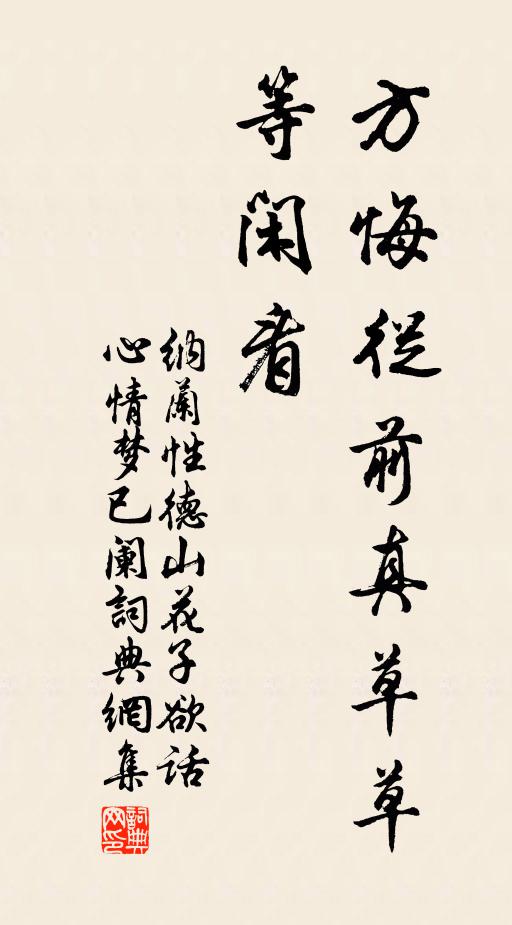 方悔從前真草草
等閑看
納蘭性德山花子欲話
心情梦已闌詞典網集
詞典
网印